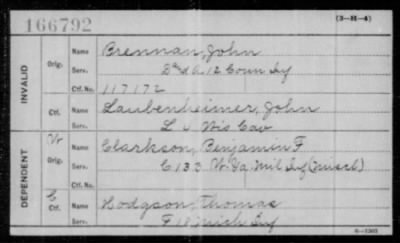 166792
(3-H-4)
INVALID
Orig.
Name Brennan, John
Serv. A 12 Conn Inf
Ctf. No. 117172
Ctf.
Name Laubenheimer, John
Serv. L 4 Wis Cav
DEPENDENT
Orig.
Name Clarkson, Benjamin F
Serv. C 133 W. Va. Mil Inf (Miscl)
Ctf. No.
C
Ctf.
Name Hodgson, Thomas
Serv. F 18 Mich Inf